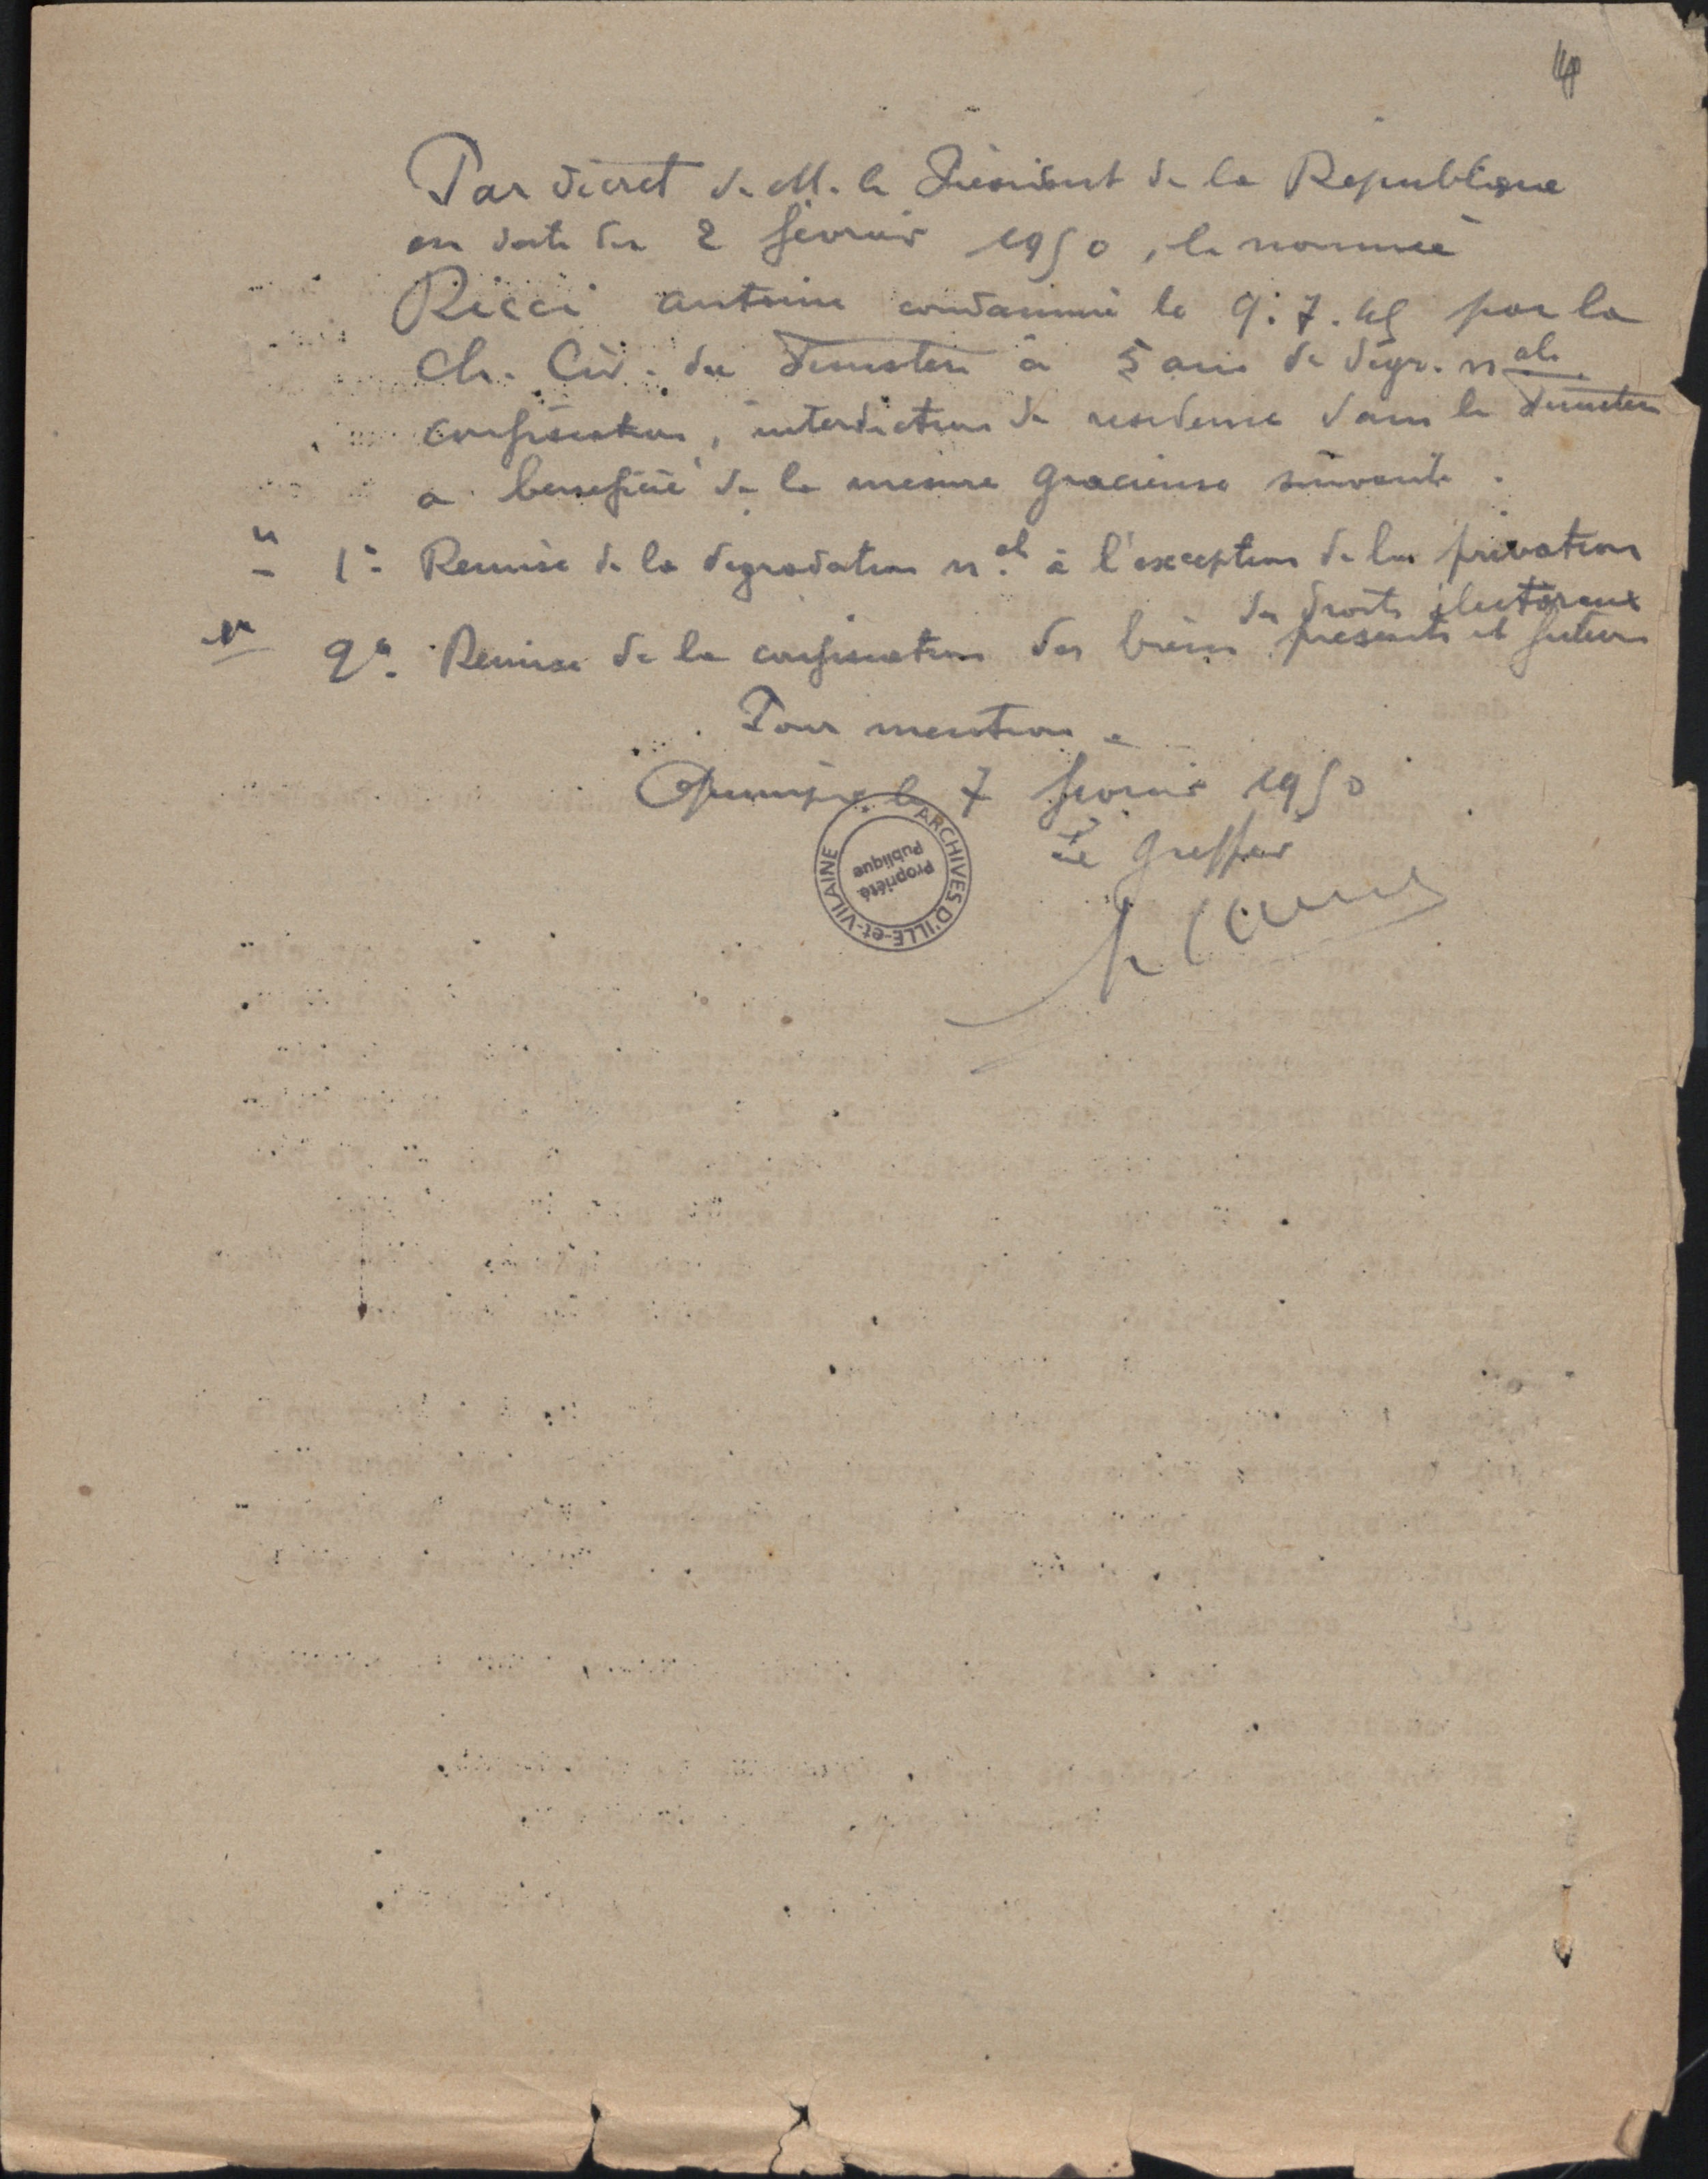 Par décret de M. le Président de la République
en date du 2 février 1950, le nommé
Ricci Antoine condamné le 9.7.45 par la
Ch. Civ. du Finistère à 5 ans de dégr. nale
confiscation, interdiction de residence dans le Finistère
a bénéficié de la mesure gracieuse suivante.
1° Remise de la degradation n.al à l'exception de la privation
des droits électoraux
2° Remise de la confiscation des biens presents et futurs
Pour mention.
Quimper le 7 février 1950
Le Greffier
ARCHIVES D'ILLE-et-VILAINE
Propriété
Publique